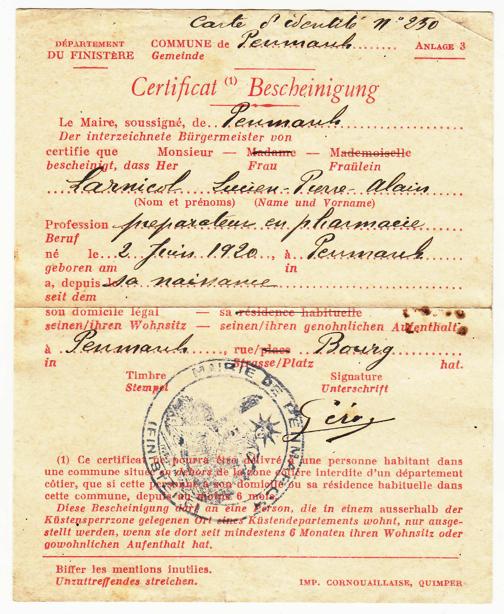 Carte d'identité N° 250
DÉPARTEMENT COMMUNE de Penmarch ANLAGE 3
DU FINISTÈRE Gemeinde
Certificat (1) Bescheinigung
Le Maire, soussigné, de Penmarch
Der interzeichnete Bürgermeister von
certifie que Monsieur — Madame — Mademoiselle
bescheinigt, dass Her Frau Fraülein
Larnicol Lucien-Pierre-Alain
(Nom et prénoms) (Name und Vorname)
Profession préparateur en pharmacie
Beruf
né le 2 Juin 1920, à Penmarch
geboren am in
a, depuis sa naissance
seit dem
son domicile légal — sa résidence habituelle
seinen/ihren Wohnsitz — seinen/ihren genohnlichen Aufenthalt
à Penmarch, rue/place Bourg
in Strasse/Platz hat.
Timbre Signature
Stempel Unterschrift
MAIRIE DE PENMARCH
(1) Ce certificat ne pourra être délivré à une personne habitant dans
une commune située en dehors de la zone côtière interdite d'un département
côtier, que si cette personne a son domicile ou sa résidence habituelle dans
cette commune, depuis au moins 6 mois.
Diese Bescheinigung darf an eine Person, die in einem ausserhalb der
Küstensperrzone gelegenen Ort eines Küstendepartements wohnt, nur ausge-
stellt werden, wenn sie dort seit mindestens 6 Monaten ihren Wohnsitz oder
gowohnlichen Aufenthalt hat.
Biffer les mentions inutiles.
Unzuttreffendes streichen. IMP. CORNOUAILLAISE, QUIMPER